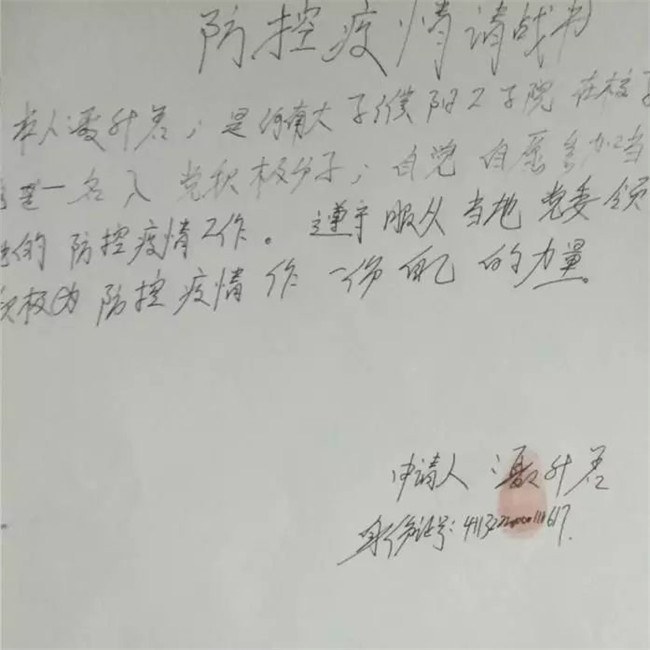 防控疫情请战书
本人 升若，是河南大学濮阳工学院在校
是一名入党积极分子，自觉自愿参加当
的防控疫情工作。遵守服从当地党委领
积极为防控疫情作一份自己的力量。
申请人 升若
身份证号：